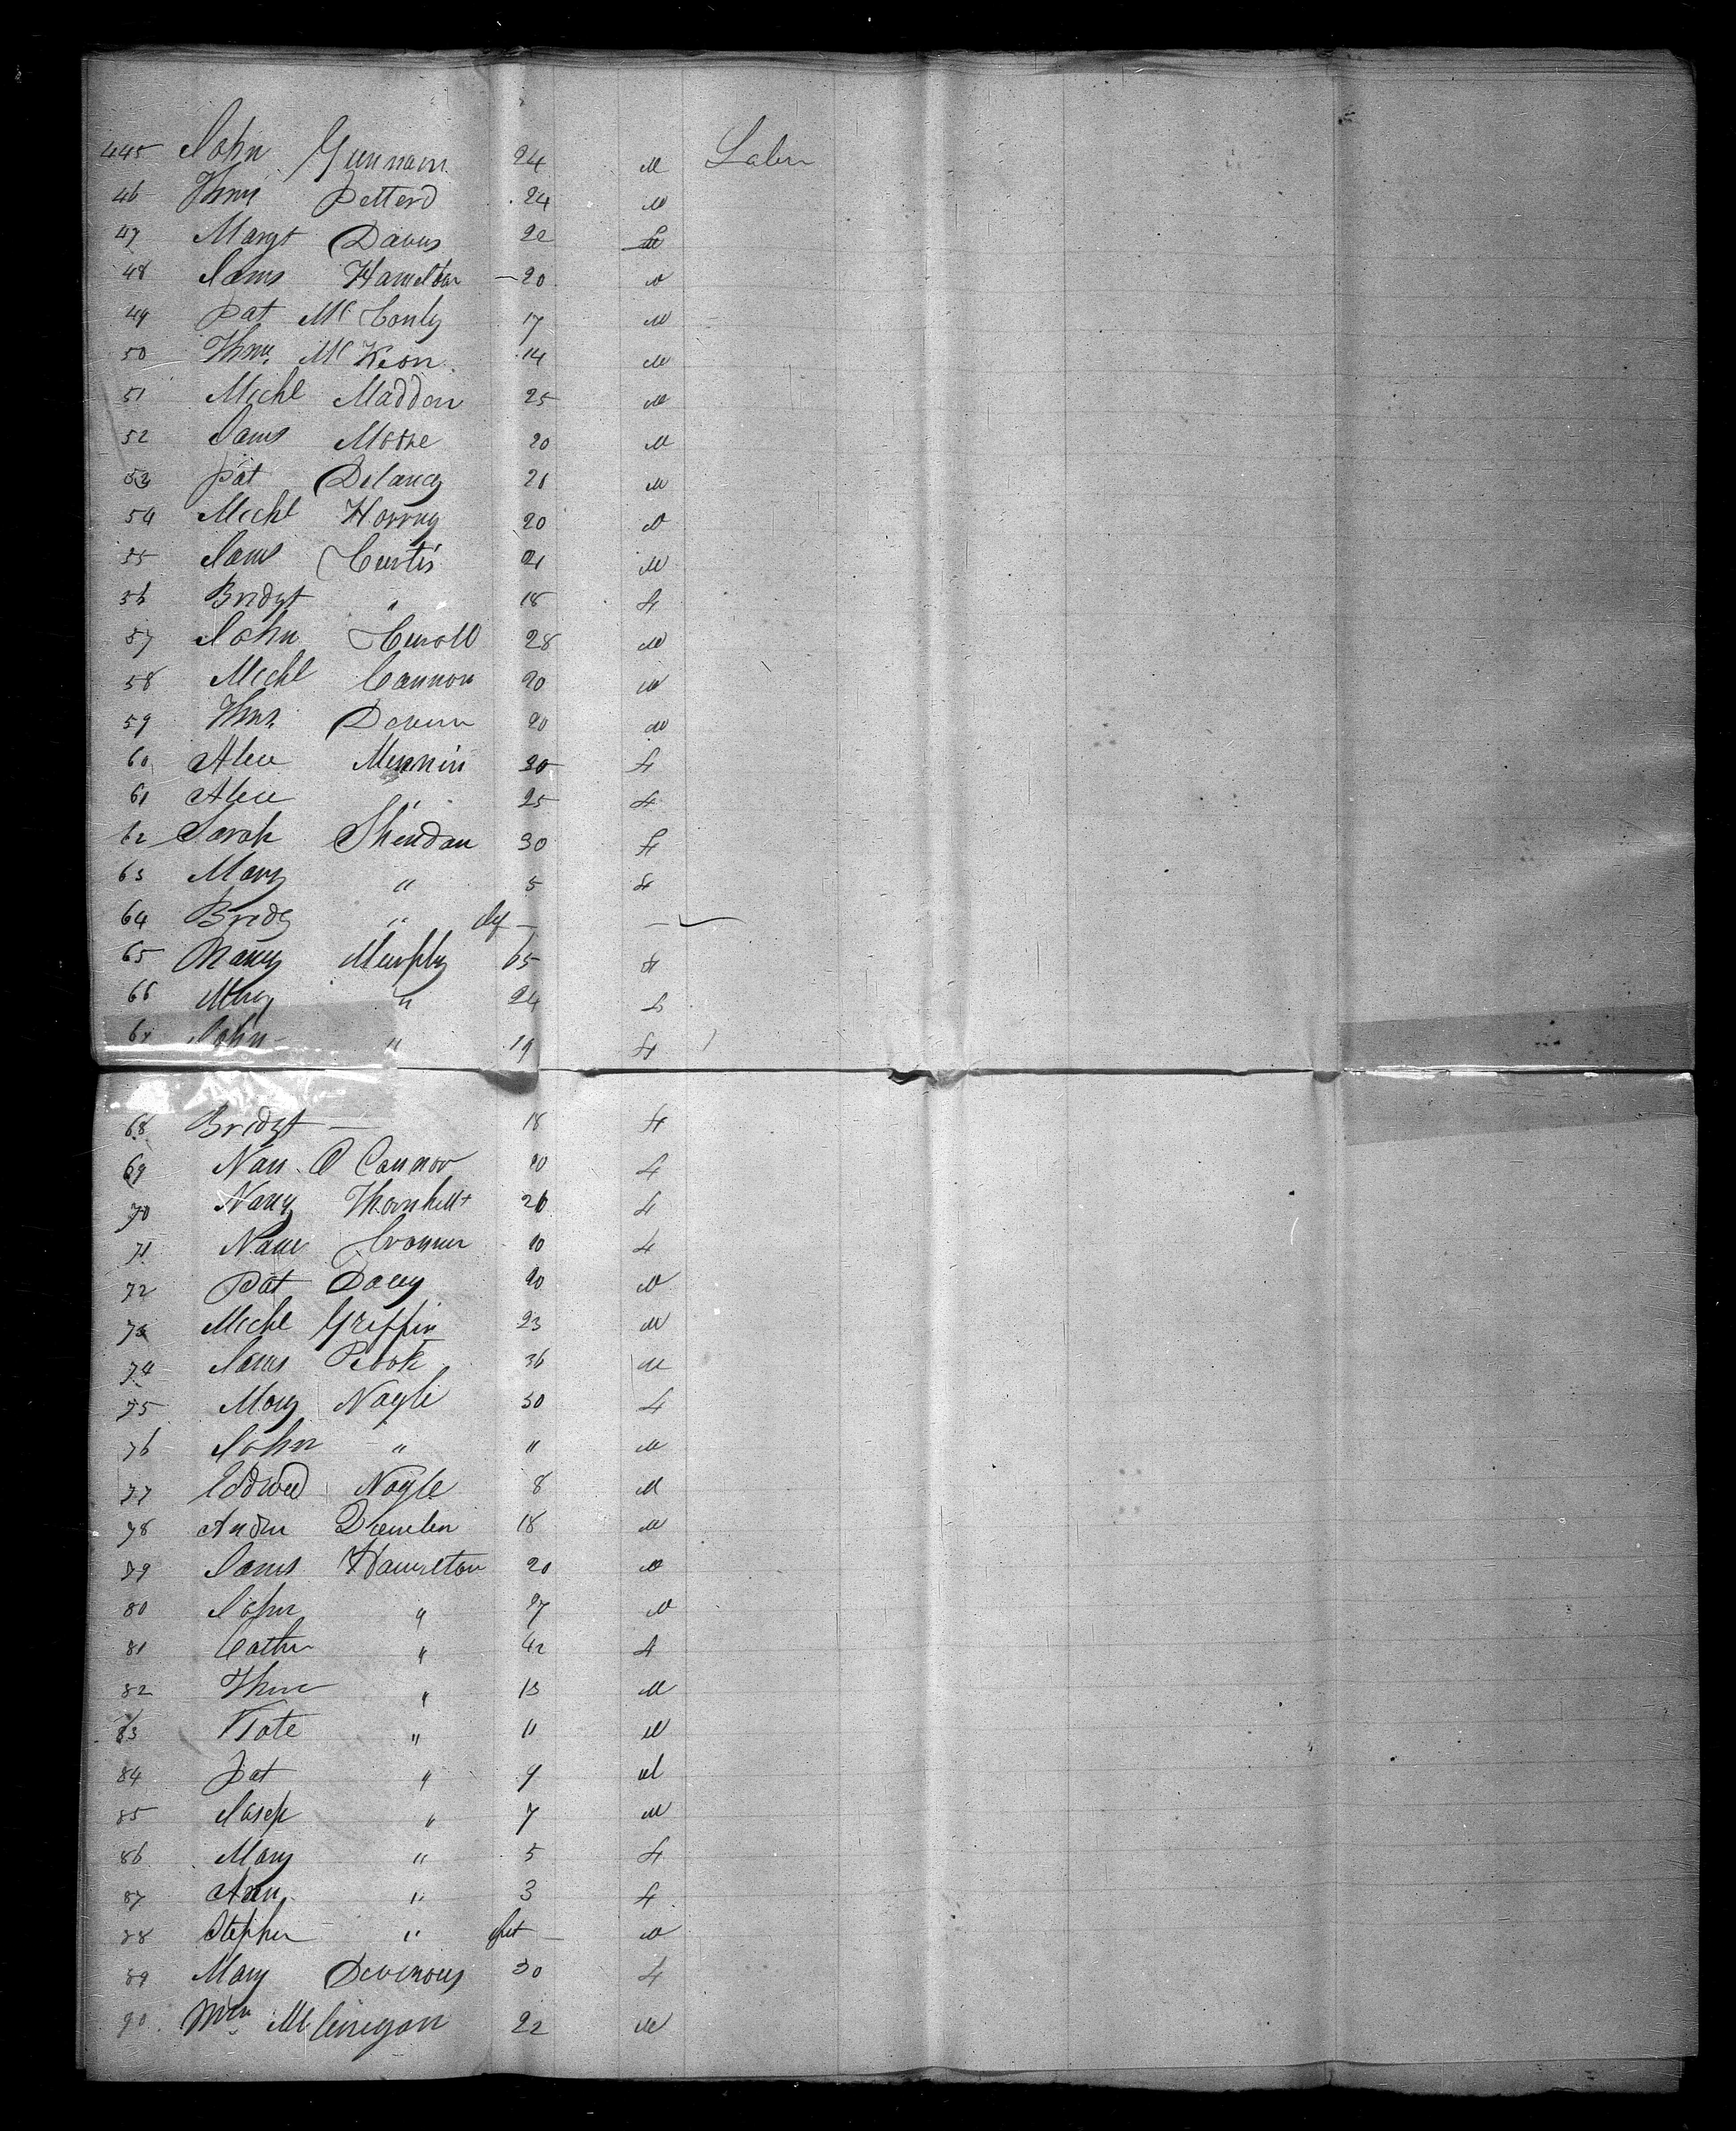 445 John Gunnain 24 M Labr
46 Thos Petterd 24 M
47 Margt Davus 20 f
48 Jams Hamelton 20 M
49 Pat Mc Conly 17 M
50 Thos Mc Keon 14 M
51 Michl Madden 25 M
52 Jams Moore 20 M
53 Pat Delancy 21 M
54 Michl Horrny 20 M
55 Jams Curtis 21 M
56 Bridgt " 18 f
57 John 28 M
58 Michl Cannon 20 M
59 Thos Devern 20 M
60 Alice Mennin f
61 Alice " 25 f
62 Sarah Sheridan 30 f
63 Mary " 5 f
64 Bridg " —
65 Nancy Murphy 65 f
66 Mary " 24 f
67 John " 19 f
68 Bridgt — 18 f
69 Nan O Connor 20 f
70 Nancy Thornhill 26 f
71 f
72 Pat Dacey 20 M
73 Michl Griffin 23 M
74 Jams 36 M
75 Mary Nagle 30 f
76 John " " M
77 Eddwd Nagle 8 M
78 Andw 18 M
79 Jams Hamilton 20 M
80 John " 27 M
81 Cathr " 42 f
82 Thos " 13 M
83 Kate " 11 M
84 Pat " 9 M
85 Josep " 7 M
86 Mary " 5 f
87 Ann " 3 f
88 Stephen " Inft — M
89 Mary Deverous 30 f
90 Wm 22 M